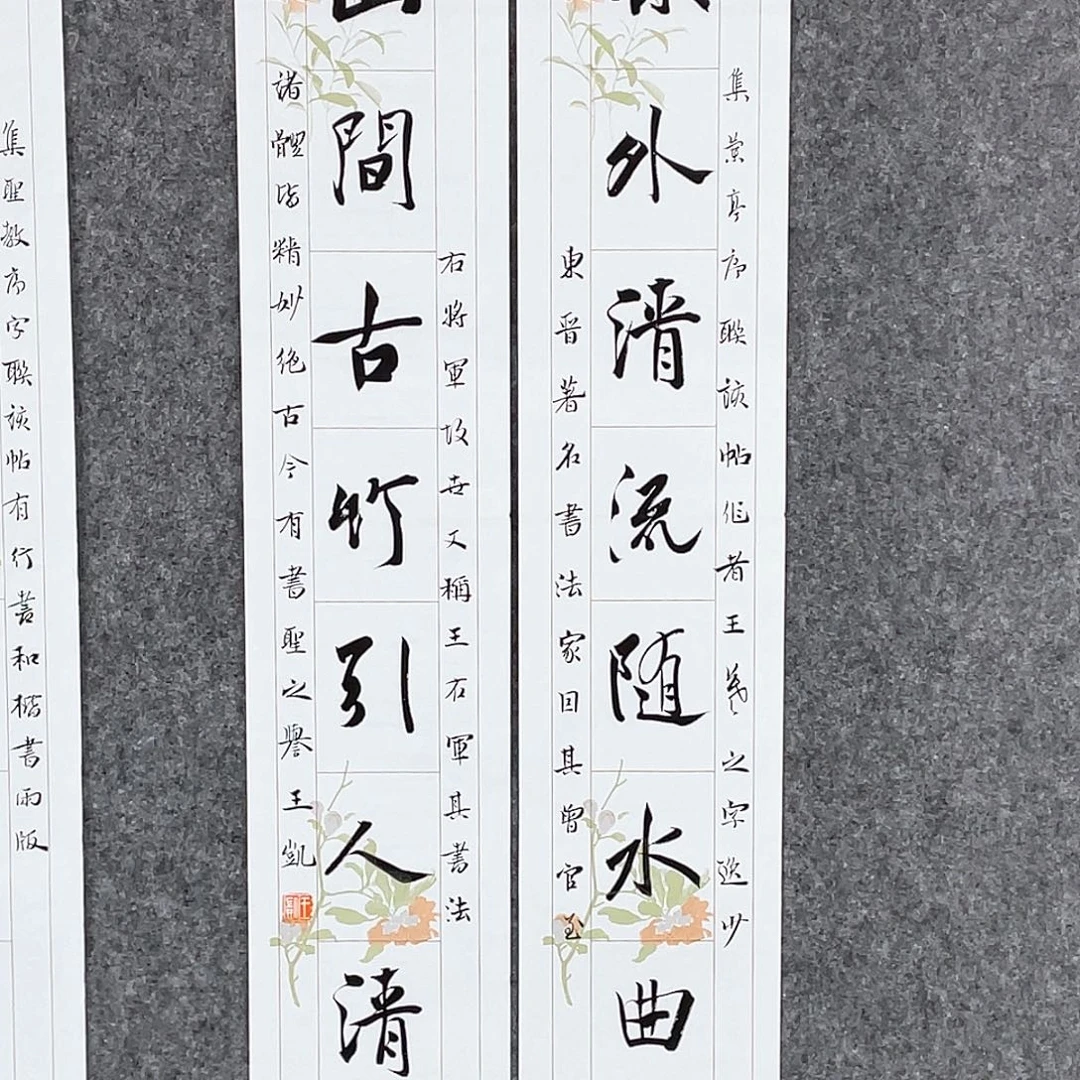 集蘭亭序聯該帖作者王羲之字逸少
外清流随水曲
東晋著名書法家因其曾官至
右將軍故世又稱王右軍其書法
間古竹引人清
諸體皆精妙绝古今有書聖之譽王凱
集聖教序字聯該帖有行書和楷書兩版